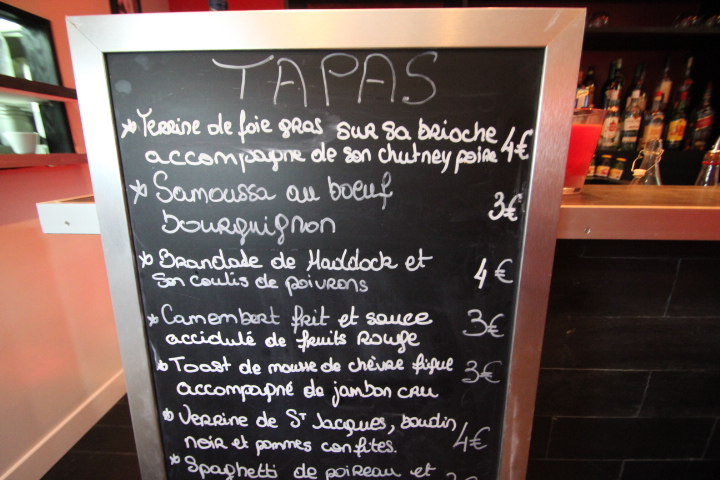 TAPAS
* Terrine de foie gras sur sa brioche
accompagne de son chutney poire 4€
* Samoussa au boeuf
bourguignon 3€
* Brandade de Haddock et
son coulis de poivrons 4€
* Camembert frit et sauce
accidulé de fruits Rouge 3€
* Toast de mousse de chèvre figue
accompagné de jambon cru 3€
* Verrine de St Jacques, boudin
noir et pommes confites. 4€
* Spaghetti de poireau et